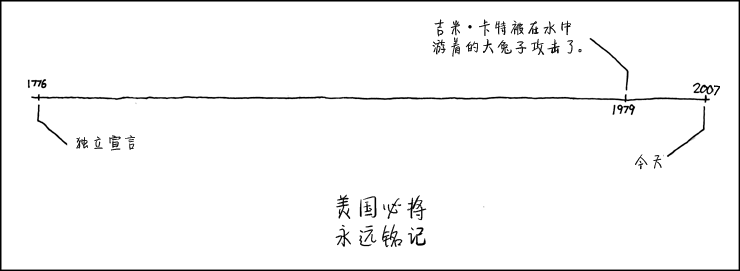 吉米·卡特被在水中
游着的大兔子攻击了。
1776
1979
2007
独立宣言
今天
美国必将
永远铭记